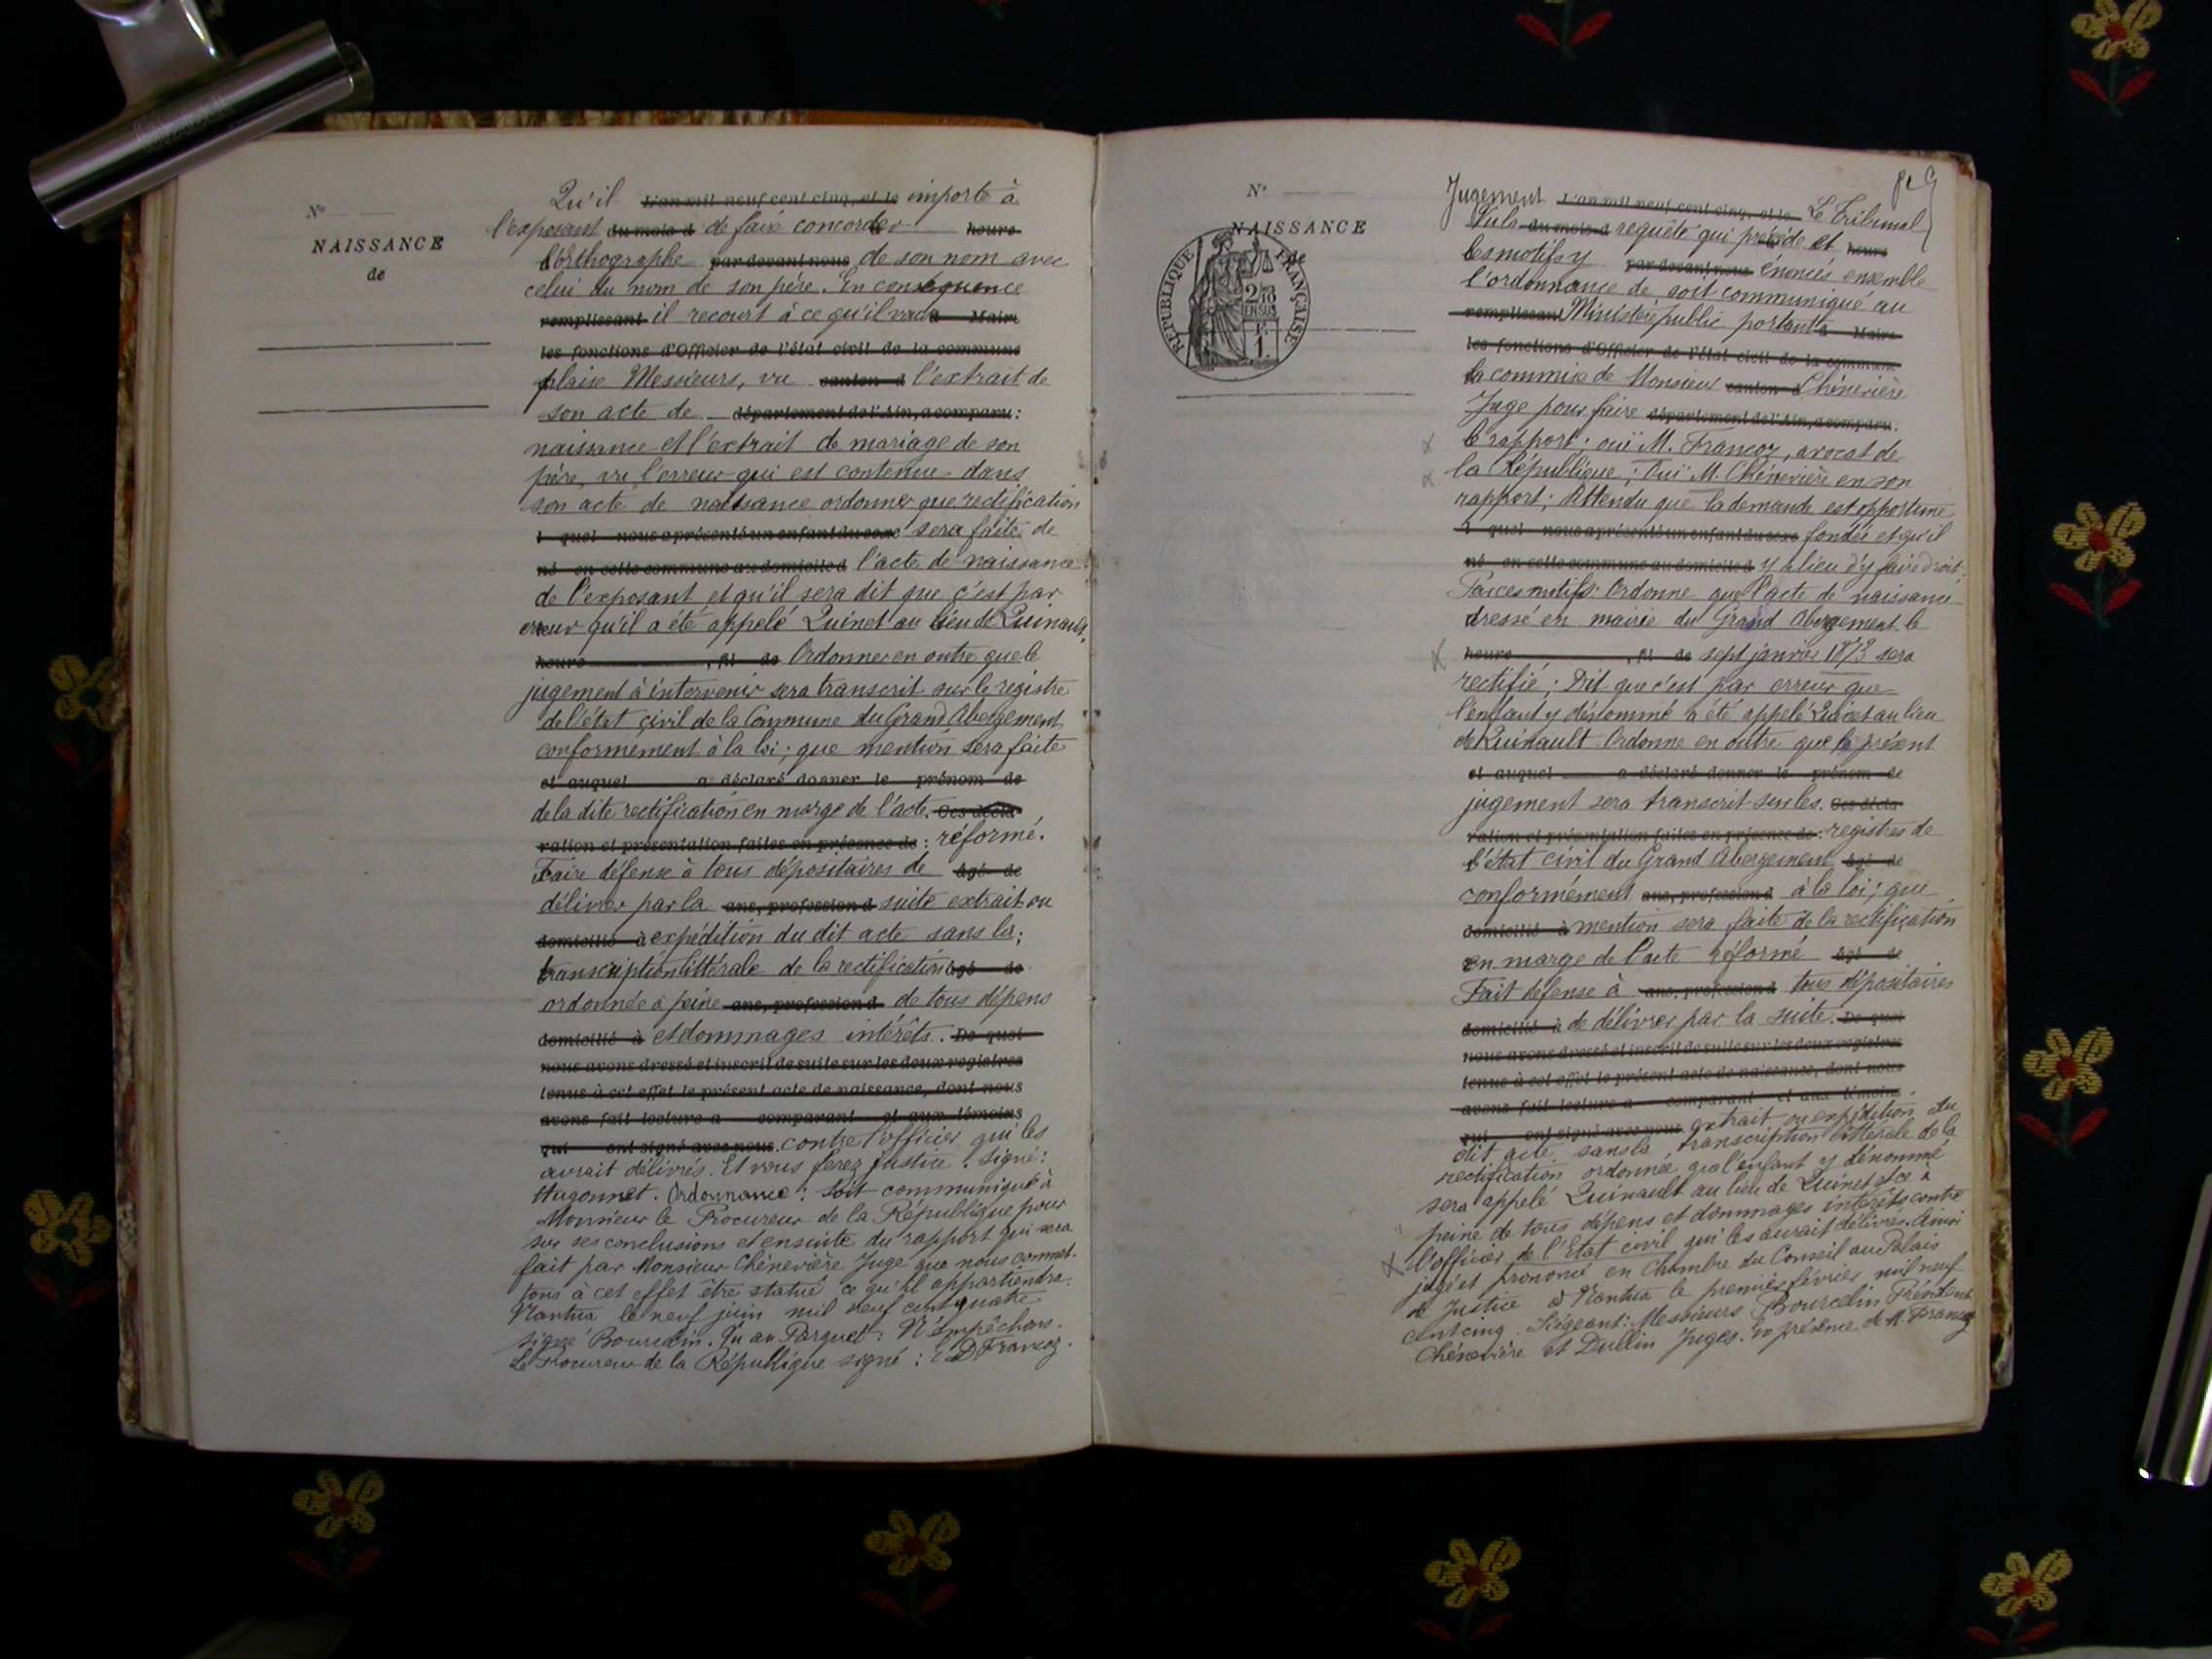 N°
NAISSANCE
de
Qu'il L'an mil neuf cent cinq, et le importe à
l'exposant du mois d de faire concorder heure
l'orthographe par devant nous de son nom avec
celui du nom de son père. En conséquence
remplissant il recourt à ce qu'il vous Maire
les fonctions d'Officier de l'état civil de la commune
plaise Messieurs, vu canton d l'extrait de
son acte de département de l'Ain, a comparu :
naissance et l'extrait de mariage de son
père, vu l'erreur qui est contenue dans
son acte de naissance ordonner que rectification
l quel nous a présenté un enfant du sexe sera faite de
né en cette commune au domicile d l'acte de naissance
de l'exposant et qu'il sera dit que c'est par
erreur qu'il a été appelé Quinet au lieu de Quinault.
heure , fil de Ordonner en outre que le
jugement à intervenir sera transcrit sur le registre
de l'état civil de la Commune du Grand Abergement
conformément à la loi ; que mention sera faite
et auquel a déclaré donner le prénom de
de la dite rectification en marge de l'acte. Ces décla-
ration et présentation faites en présence de : réformé.
Faire défense à tous dépositaires de âgé de
délivrer par la ans, profession d suite extrait ou
domicilié à expédition du dit acte sans la ;
transcription littérale de la rectification âgé de
ordonnée à peine ans, profession d de tous dépens
domicilié à et dommages intérêts. De quoi
nous avons dressé et inscrit de suite sur les deux registres
tenus à cet effet le présent acte de naissance, dont nous
avons fait lecture a comparant et aux témoins
qui ont signé avec nous. contre l'officier qui les
aurait délivrés. Et vous ferez justice. Signé :
Hugonnet. Ordonnance : Soit communiqué à
Monsieur le Procureur de la République pour
sur ses conclusions et ensuite du rapport qui sera
fait par Monsieur Chènevière Juge que nous commet-
tons à cet effet être statué ce qu'il appartiendra.
Nantua le neuf juin mil neuf cent quatre
signé Bourdin. Vu au Parquet : N'empêchons.
Le Procureur de la République signé : E D Francoz.
N°
NAISSANCE
de
REPUBLIQUE FRANÇAISE
Jugement L'an mil neuf cent cinq, et le Le Tribunal
du mois d requête qui précède et heure
les motifs y par devant nous énoncés ensemble
l'ordonnance de soit communiqué au
remplissant Ministère public portant à Maire
les fonctions d'Officier de l'état civil de la commune
la commise de Monsieur canton d Chènevière
Juge pour faire département de l'Ain, a comparu.
le rapport ; ouï M. Francoz, avocat de
la République ; Ouï M. Chènevière en son
rapport ; Attendu que la demande est opportune
l quel nous a présenté un enfant du sexe fondée et qu'il
né en cette commune au domicile d y a lieu d'y faire droit ;
Par ces motifs : Ordonne que l'acte de naissance
dressé en mairie du Grand Abergement le
heure , fil de sept janvier 1873 sera
rectifié ; Dit que c'est par erreur que
l'enfant y dénommé a été appelé Quinet au lieu
de Quinault Ordonne en outre que le présent
et auquel a déclaré donner le prénom de
jugement sera transcrit sur les. Ces décla-
ration et présentation faites en présence de : registres de
l'état civil du Grand Abergement âgé de
conformément ans, profession d à la loi ; que
domicilié à mention sera faite de la rectification
en marge de l'acte réformé âgé de
Fait défense à ans, profession d tous dépositaires
domicilié à de délivrer par la suite. De quoi
nous avons dressé et inscrit de suite sur les deux registres
tenus à cet effet le présent acte de naissance, dont nous
avons fait lecture a comparant et aux témoins
qui ont signé avec nous extrait ou expédition du
dit acte sans la transcription littérale de la
rectification ordonnée que l'enfant y dénommé
sera appelé Quinault au lieu de Quinet et ce à
peine de tous dépens et dommages intérêts contre
l'officier de l'Etat civil qui les aurait délivrés. Ainsi
jugé et prononcé en Chambre du Conseil au Palais
de Justice à Nantua le premier février mil neuf
cent cinq. Siégeant : Messieurs Bourdin Président
Chènevière et Dullin Juges. En présence de M. Francoz